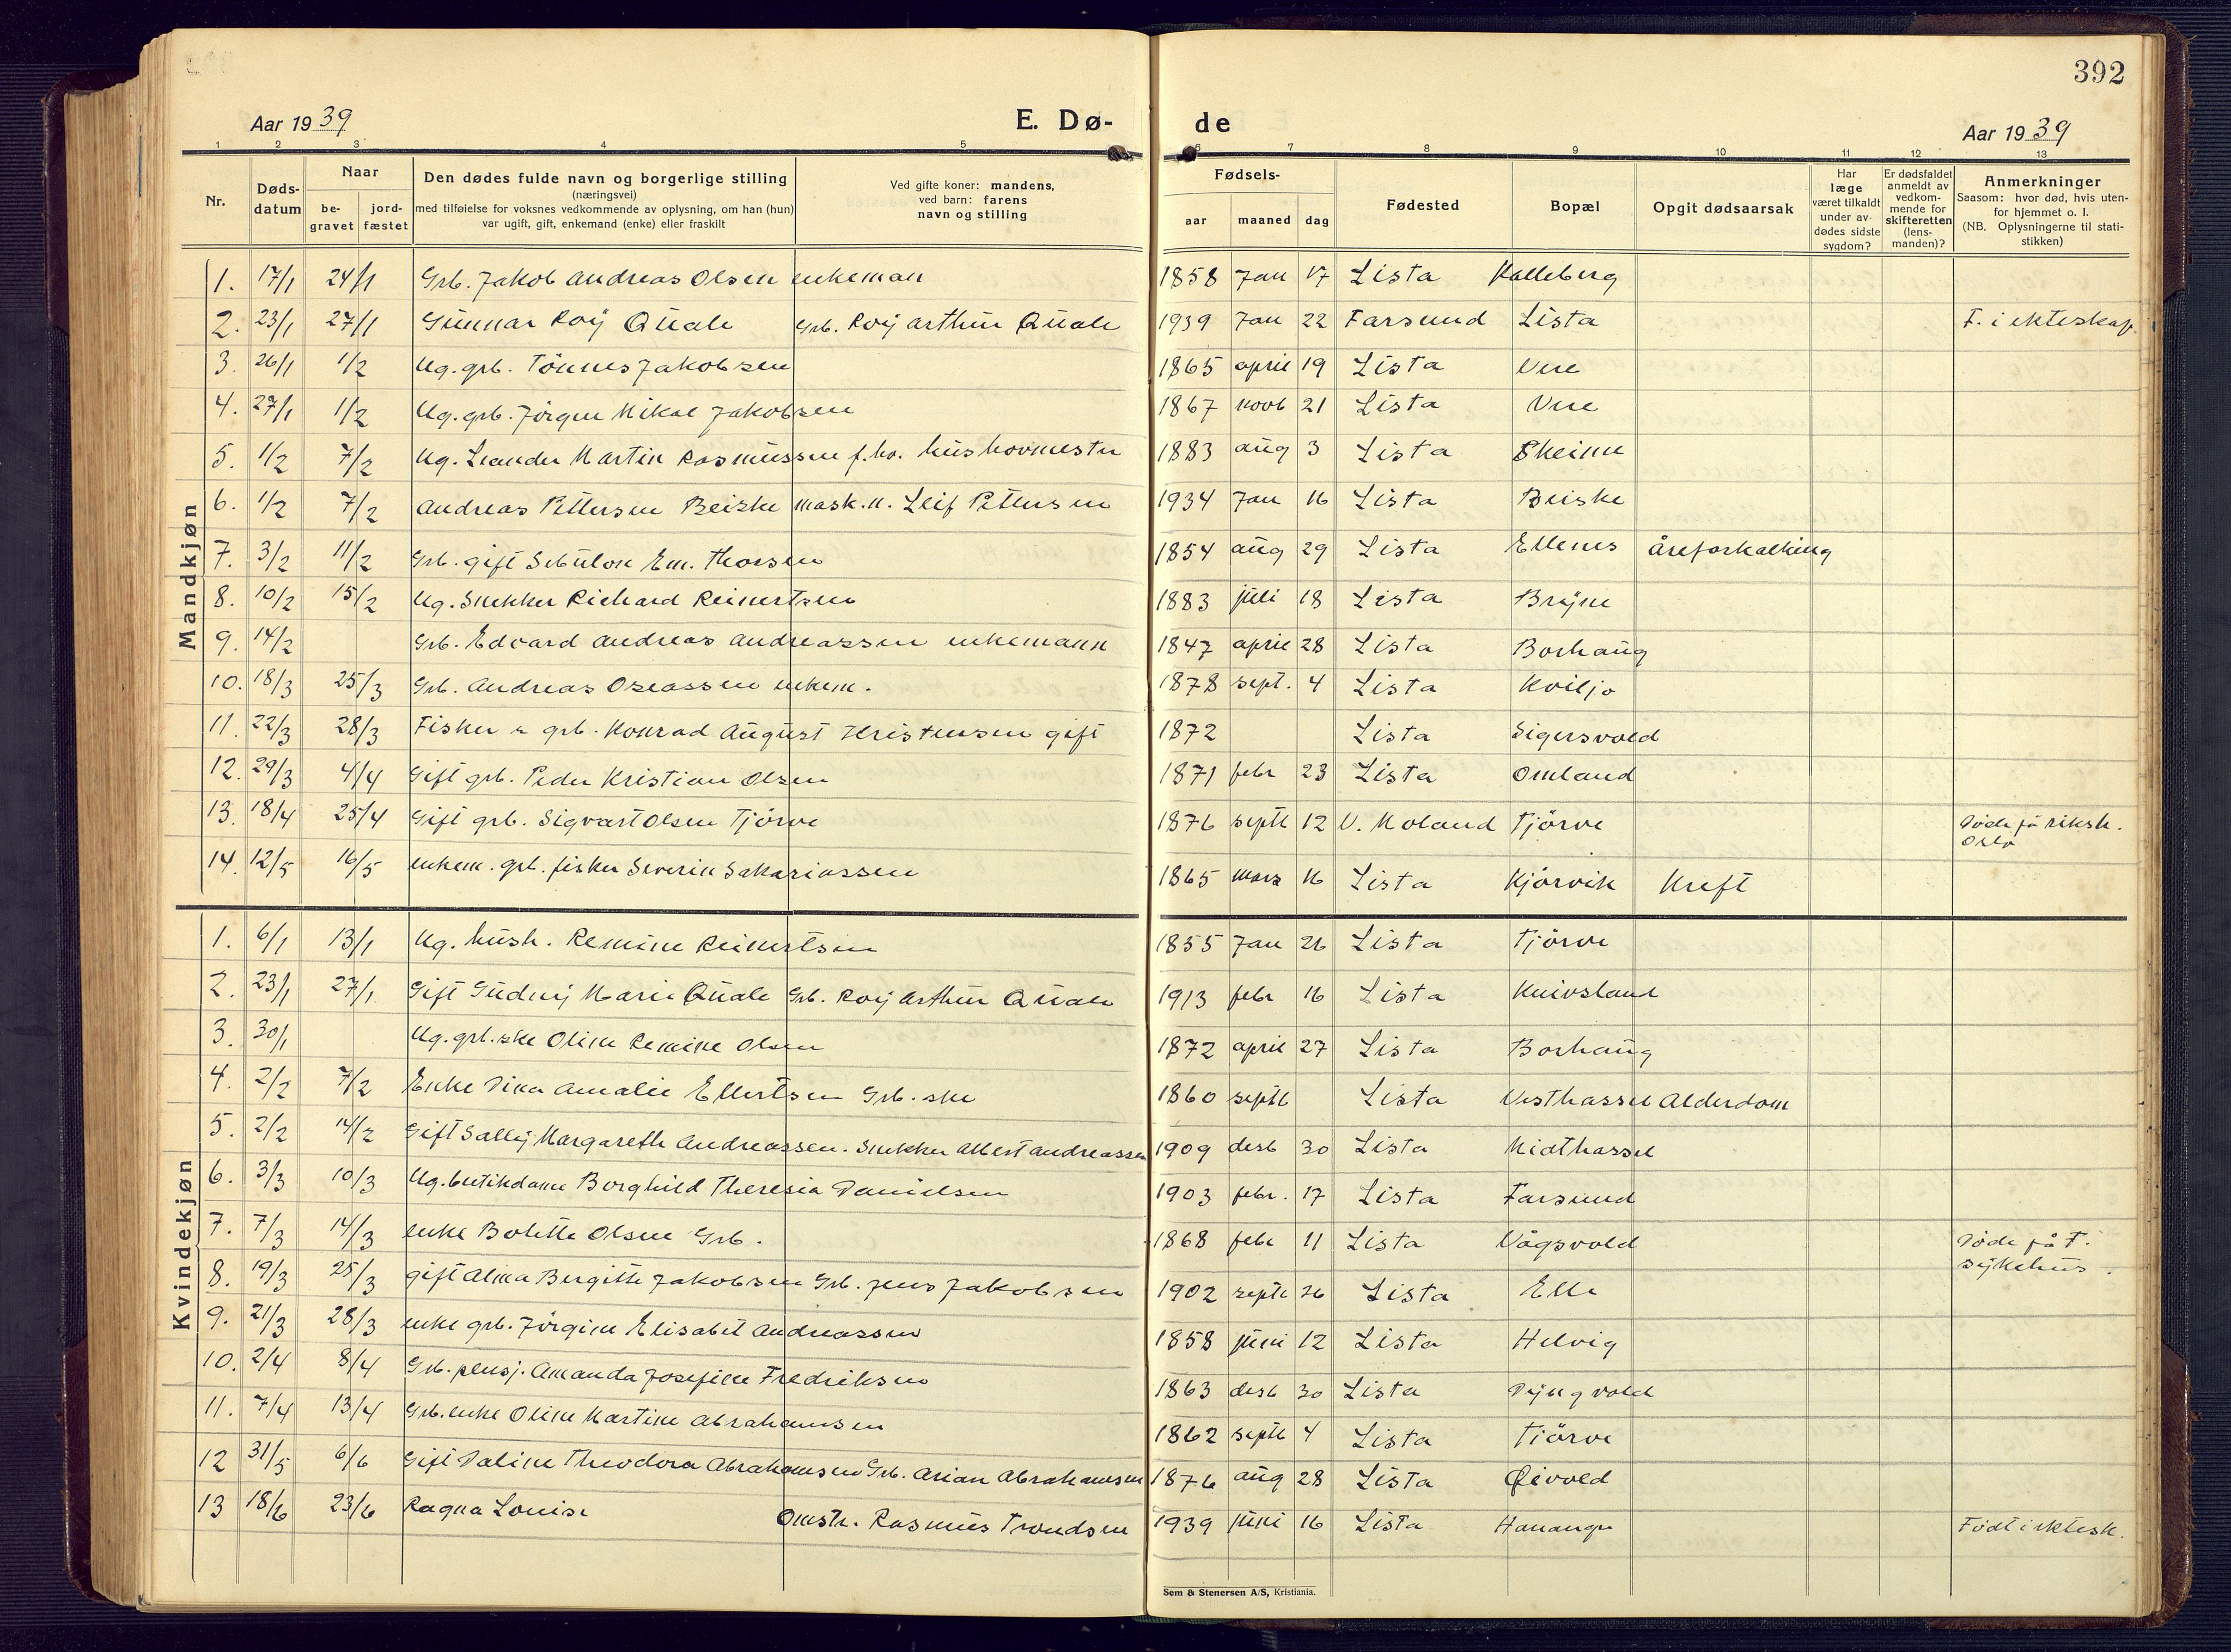 392
Aar 1939 E. Dø- de Aar 1939
1 2 3 4 5 6 7 8 9 10 11 12 13
Nr.
Døds-
datum
Naar
be-
gravet
jord-
fæstet
Den dødes fulde navn og borgerlige stilling
(næringsvei)
med tilføielse for voksnes vedkommende av oplysning, om han (hun)
var ugift, gift, enkemand (enke) eller fraskilt
Ved gifte koner: mandens,
ved barn: farens
navn og stilling
Fødsels-
aar maaned dag
Fødested
Bopæl
Opgit dødsaarsak
Har
læge
været tilkaldt
under av-
dødes sidste
sygdom?
Er dødsfaldet
anmeldt av
vedkom-
mende for
skifteretten
(lens-
manden)?
Anmerkninger
Saasom: hvor død, hvis uten-
for hjemmet o. l.
(NB. Oplysningerne til stati-
stikken)
Mandkjøn
1. 17/1 24/1 Grb. Jakob Andreas Olsen enkeman 1858 Jan 17 Lista Kalleberg
2. 23/1 27/1 Gunnar Roy Quale Grb. Roy Arthur Quale 1939 Jan 22 Farsund Lista F. i ekteskap.
3. 26/1 1/2 Ug. grb. Tönnes Jakobsen 1865 april 19 Lista Vere
4. 27/1 1/2 Ug. grb. Jörgen Mikal Jakobsen 1867 novb 21 Lista Vere
5. 1/2 7/2 Ug. Leander Martin Rasmussen f.hv. hushovmester 1883 aug 3 Lista Skeime
6. 1/2 7/2 Andreas Pettersen Beiske mask.m. Leif Pettersen 1934 Jan 16 Lista Beiske
7. 3/2 11/2 Grb. gift Sebulon Em. Thorsen 1854 aug 29 Lista Ellenes åreforkalking
8. 10/2 15/2 Ug. Snekker Richard Reinertsen 1883 juli 18 Lista Bryne
9. 14/2 Grb. Edvard Andreas Andreassen enkemann 1847 april 28 Lista Borhaug
10. 18/3 25/3 Grb. Andreas Oseassen enkem. 1878 sept. 4 Lista Kviljo
11. 22/3 28/3 Fisker & grb. Konrad August Kristensen gift 1872 Lista Sigersvold
12. 29/3 4/4 Gift grb. Peder Kristian Olsen 1871 febr 23 Lista Omland
13. 18/4 25/4 Gift grb. Sigvart Olsen Tjörve 1876 septb 12 V. Moland Tjörve Döde på riksh.
Oslo
14. 12/5 16/5 enkem. grb. fisker Severin Sakariassen 1865 mars 16 Lista Kjörvik Kreft
Kvindekjøn
1. 6/1 13/1 Ug. hush. Remine Reinertsen 1855 Jan 26 Lista Tjörve
2. 23/1 27/1 Gift Gudny Marie Quale Grb. Roy Arthur Quale 1913 febr 16 Lista Knivsland
3. 30/1 Ug. grb.ske Oline Remine Olsen 1872 april 27 Lista Borhaug
4. 2/2 7/2 Enke Dina Amalie Ellertsen Grb. ske 1860 septb Lista Vesthassel Alderdom
5. 2/2 14/2 Gift Sally Margareth Andreassen. Snekker Albert Andreassen 1909 desb 30 Lista Midthassel
6. 3/3 10/3 Ug. butikdame Borghild Theresia Danielsen 1903 febr. 17 Lista Farsund
7. 7/3 14/3 enke Bolette Olsen Grb. 1868 febr 11 Lista Vågsvold Döde på F.
sykehus.
8. 19/3 25/3 gift Alma Bergitte Jakobsen Grb. Jens Jakobsen 1902 septb 26 Lista Elle
9. 21/3 28/3 enke grb. Jörgine Elisabet Andreassen 1858 juni 12 Lista Helvig
10. 2/4 8/4 Grb. pensj. Amanda Josefine Fredriksen 1863 desb 30 Lista Dyngvold
11. 7/4 13/4 Grb. enke Oline Martine Abrahamsen 1862 septb 4 Lista Tjörve
12 31/5 6/6 Gift Daline Theodora Abrahamsen Grb. Arian Abrahamsen 1876 aug 28 Lista Øivold
13 18/6 23/6 Ragna Louise Omstr. Rasmus Trondsen 1939 juni 16 Lista Hananger Födt i ektesk.
Sem & Stenersen A/S, Kristiania.